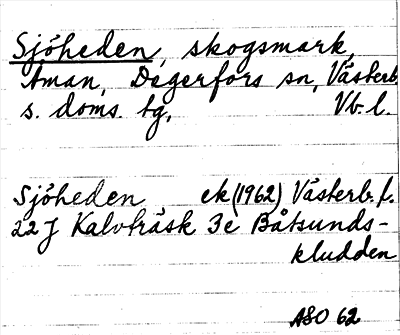 Sjöheden, skogsmark,
Åman, Degerfors sn, Västerb.
s. doms. tg, Vb. l.
Sjöheden ek (1962) Västerb. l.
22 J Kalvträsk 3e Båtsunds-
kludden
ASO 62